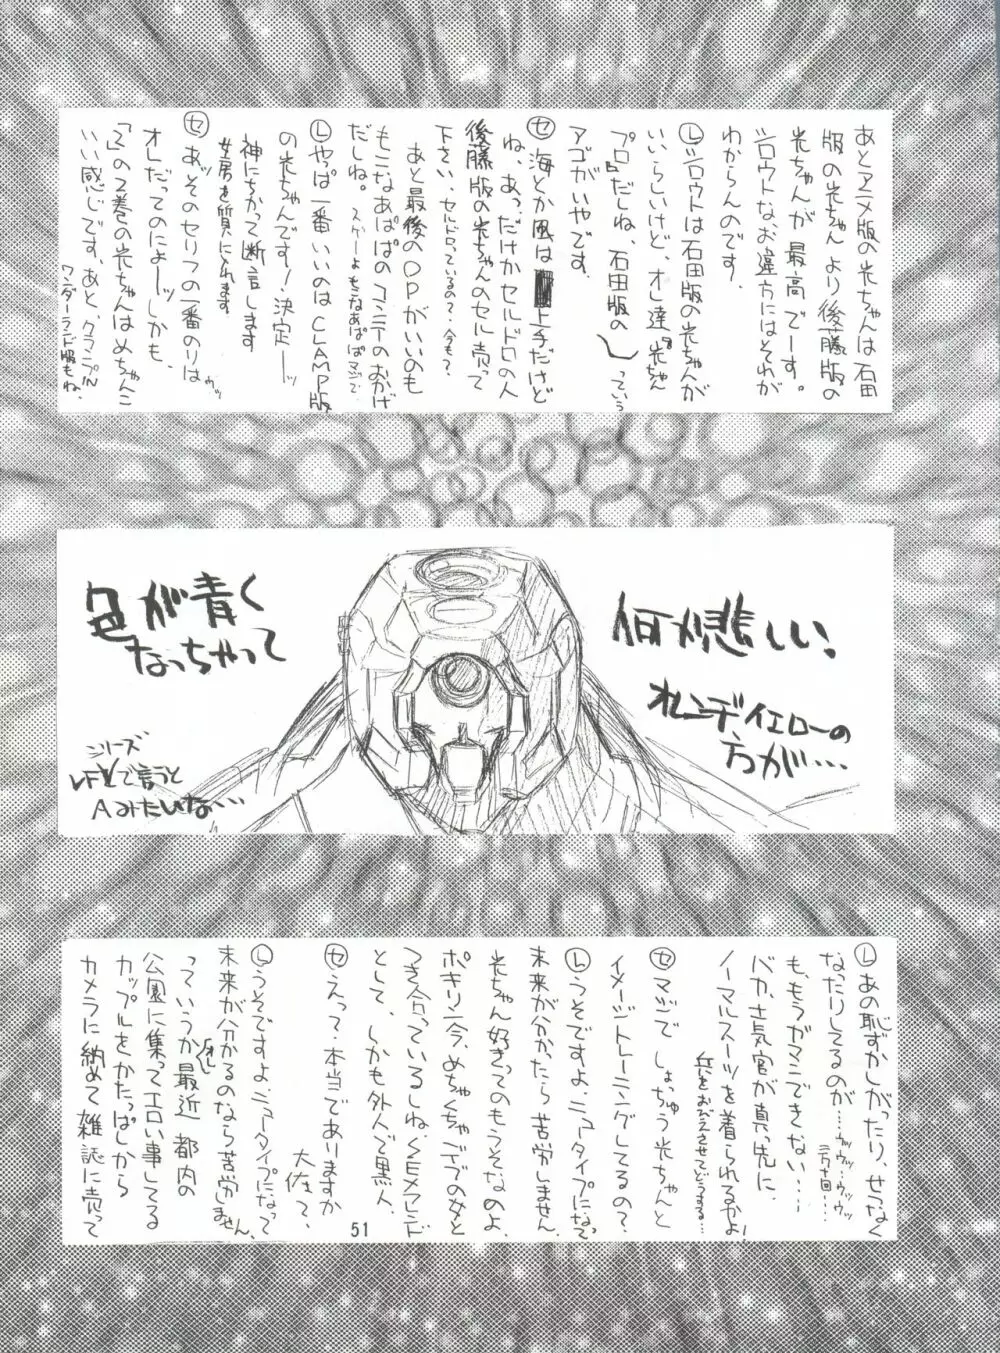 あとアニメ版の光ちゃんは石田
版の光ちゃんより後藤版の
光ちゃんが最高でーす。
シロウトな、お違方にはそれが
わからんのです。
Ⓛシロウトは石田版の光ちゃんが
いいらしいけど、オレ達『光ちゃん
プロ』だしね、石田版の〵っていう
アゴがいやです。
㋝海とか風は上手だけど
ね、あっ、だけかセルドロの人
後藤版の光ちゃんのセル売って
下さい、セルドロっているの？今も？
あと最後のOPがいいのも
もこなあぱぱのコンテのおかげ
だしね。スゲーよもこなあぱぱマジで
Ⓛやっぱ一番いいのはCLAMP版
の光ちゃんです！決定ーッ
神にちかって断言します
女房を質に入れます
㋝あッそのセリフの一番のりは
オレだってのによーッしかも、ウッ
「2」の2巻の光ちゃんはめちゃんこ
いい感じです、あと、クランプIN
ワンダーランド版もね、
何か悲しい！
オレンヂ、イエローの
方が…
色が青く
なっちゃって
シリーズ
LFXで言うと
Aみたいな…
Ⓛあの恥ずかしがったり、せつなく
なったりしてるのが…ウッウッ…ウッウッ
も、もうガマンできない…
バカ、士気官が真っ先に
ノーマルスーツを着られるかよ！
兵をおびえさせてどうする…
㋝マジでしょっちゅう光ちゃんと
イメージトレーニングしてるの？
Ⓛうそですよ、ニュータイプになって
未来が分かったら苦労しません
光ちゃん好きってのもうそなのよ、
ポキリン今、めちゃくちゃデブの女と
つき合っているしね、SEXフレンド
として、しかも外人で黒人、
㋝えって、本当でありますか
大佐って、
Ⓛうそですよ、ニュータイプになって
未来が分かるのなら苦労しません、
っていうかオレ最近 都内の
公園に集ってエロい事してる
カップルをかたっぱしから
カメラに納めて雑誌に売って
51